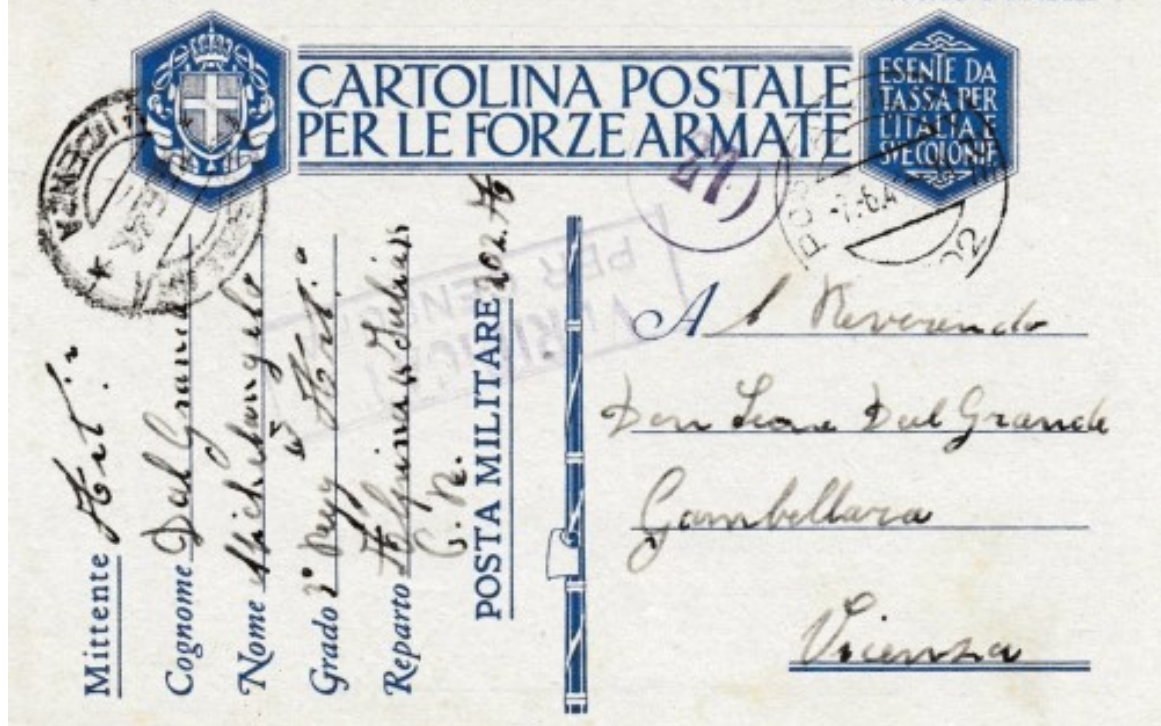 CARTOLINA POSTALE
PER LE FORZE ARMATE
ESENTE DA
TASSA PER
L'ITALIA E
SUE COLONIE
VERIFICA
PER CENSU
21
-7.-6.4
202
Mittente Art.
Cognome Dal Grande
Nome Michelangelo
Grado
Reparto Alpina Julia
C. R.
POSTA MILITARE 202. A
Al Reverendo
Don Leone Dal Grande
Gambellara
Vicenza